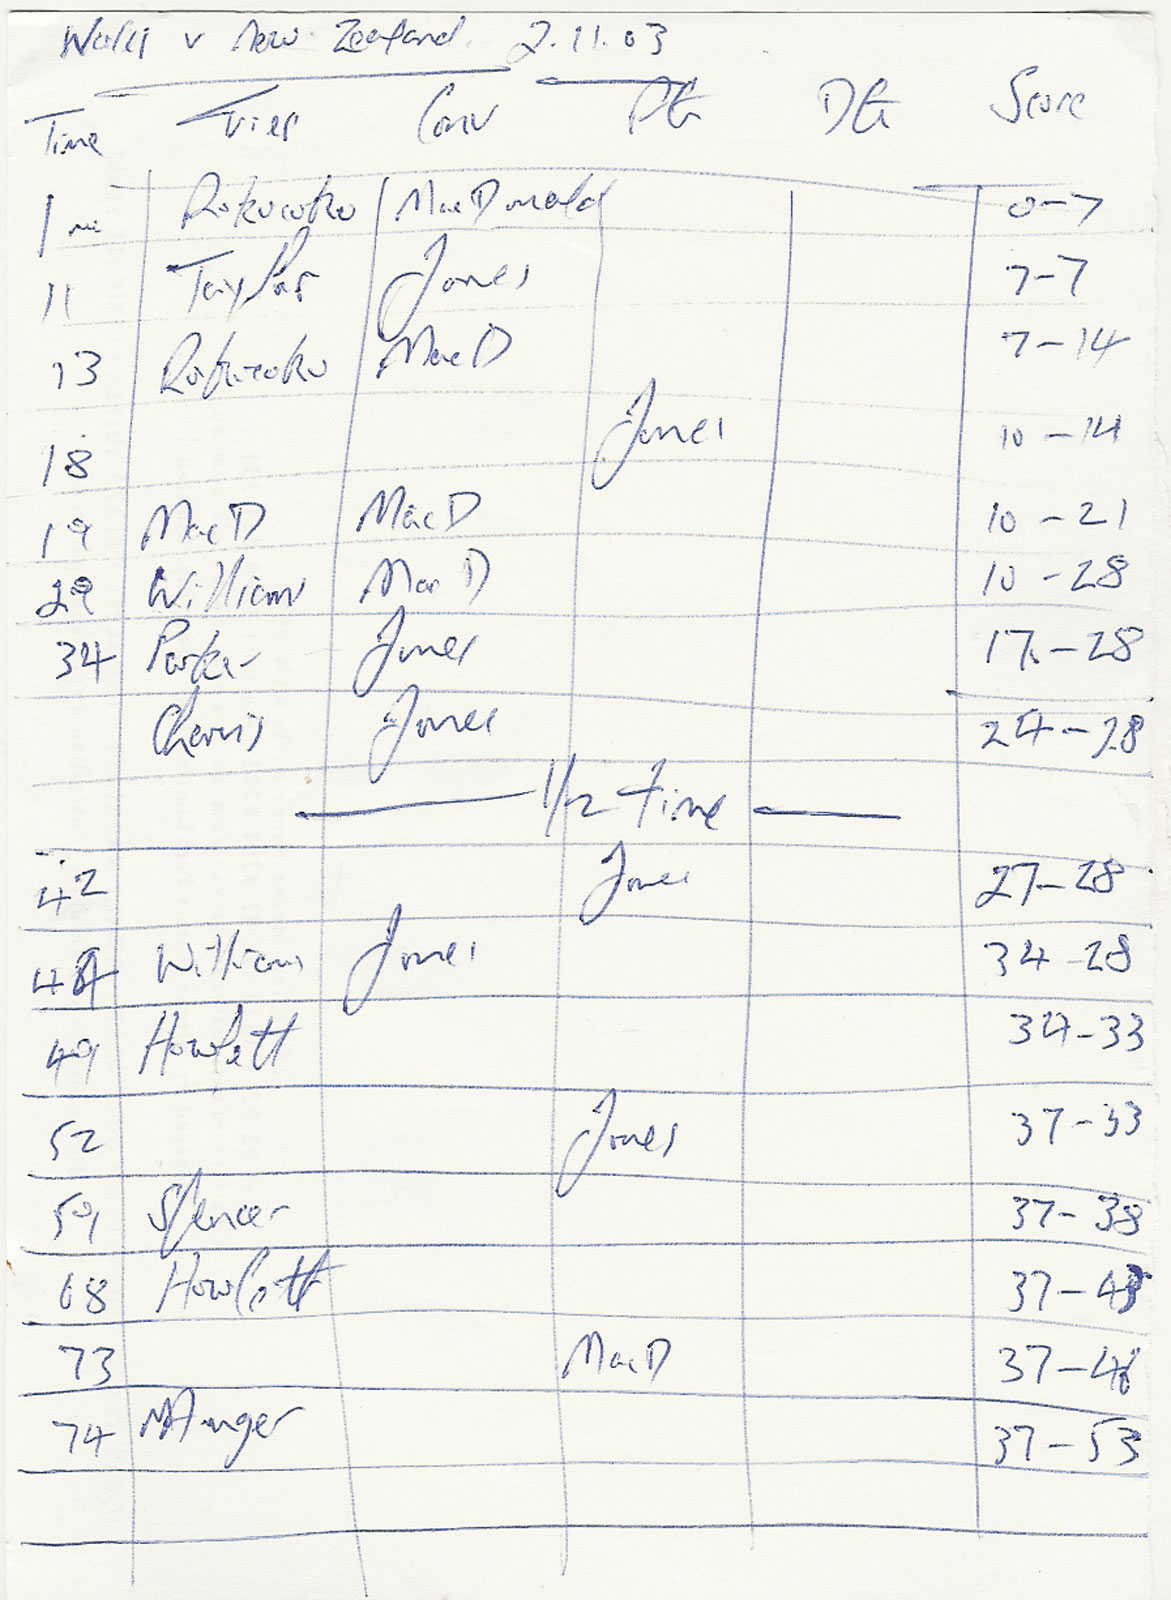 Wales v New Zealand. 2.11.03
Time Tries Conv PG DG Score
1 mi Rokocoko MacDonald 0-7
11 Taylor Jones 7-7
13 Rokocoko MacD 7-14
18 Jones 10-14
19 MacD MacD 10-21
29 Williams MacD 10-28
34 Parker Jones 17-28
Charvis Jones 24-28
1/2 Time
42 Jones 27-28
Williams Jones 34-28
49 Howlett 34-33
52 Jones 37-33
59 Spencer 37-38
68 Howlett 37-43
73 MacD 37-46
74 Mauger 37-53